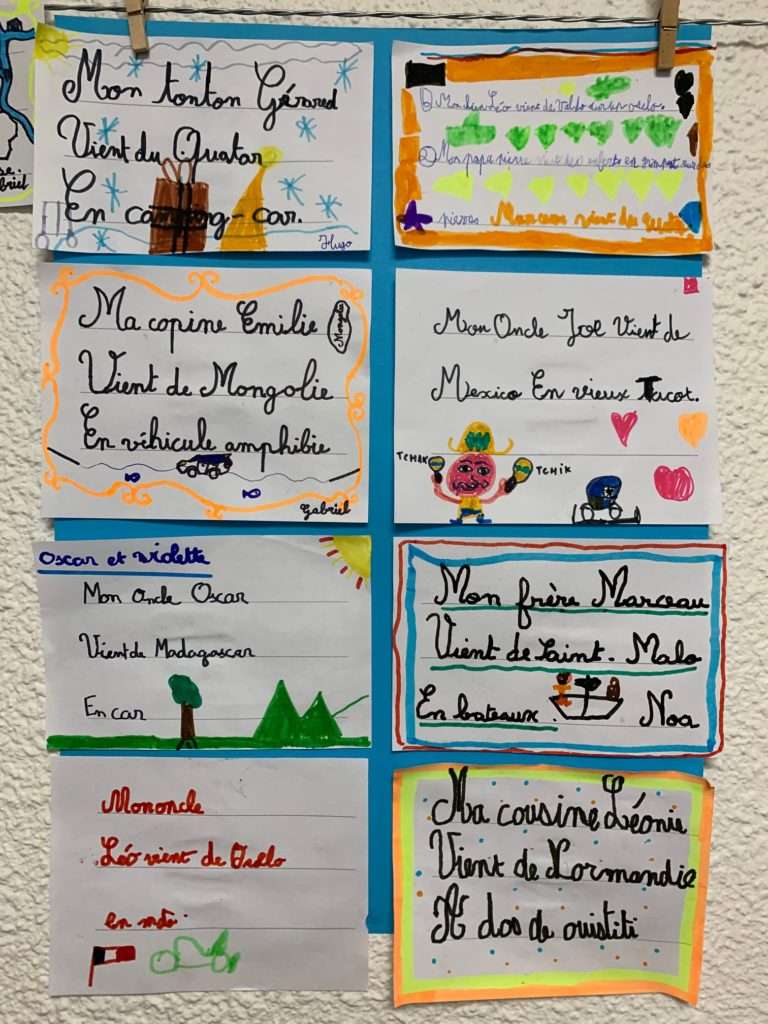 Mon tonton Gérared
Vient du Quatar
En camping-car.
Hugo
Léo vient de
vélo.
② Mon papa pierre vient des enfers en
pierres Marceau vient du
Ma copine Emilie
Vient de Mongolie
En véhicule amphibie
Gabriel
Mon Oncle Joe Vient de
Mexico En vieux Tacot.
TCHAK
TCHIK
Oscar et violette
Mon oncle Oscar
Vient de Madagascar
En car
Mon frère Marceau
Vient de Saint. Malo
En bateaux.
Noa
Mononcle
Léo vient de
en moto.
Ma cousine Léonie
Vient de Normandie
A dos de ouistiti